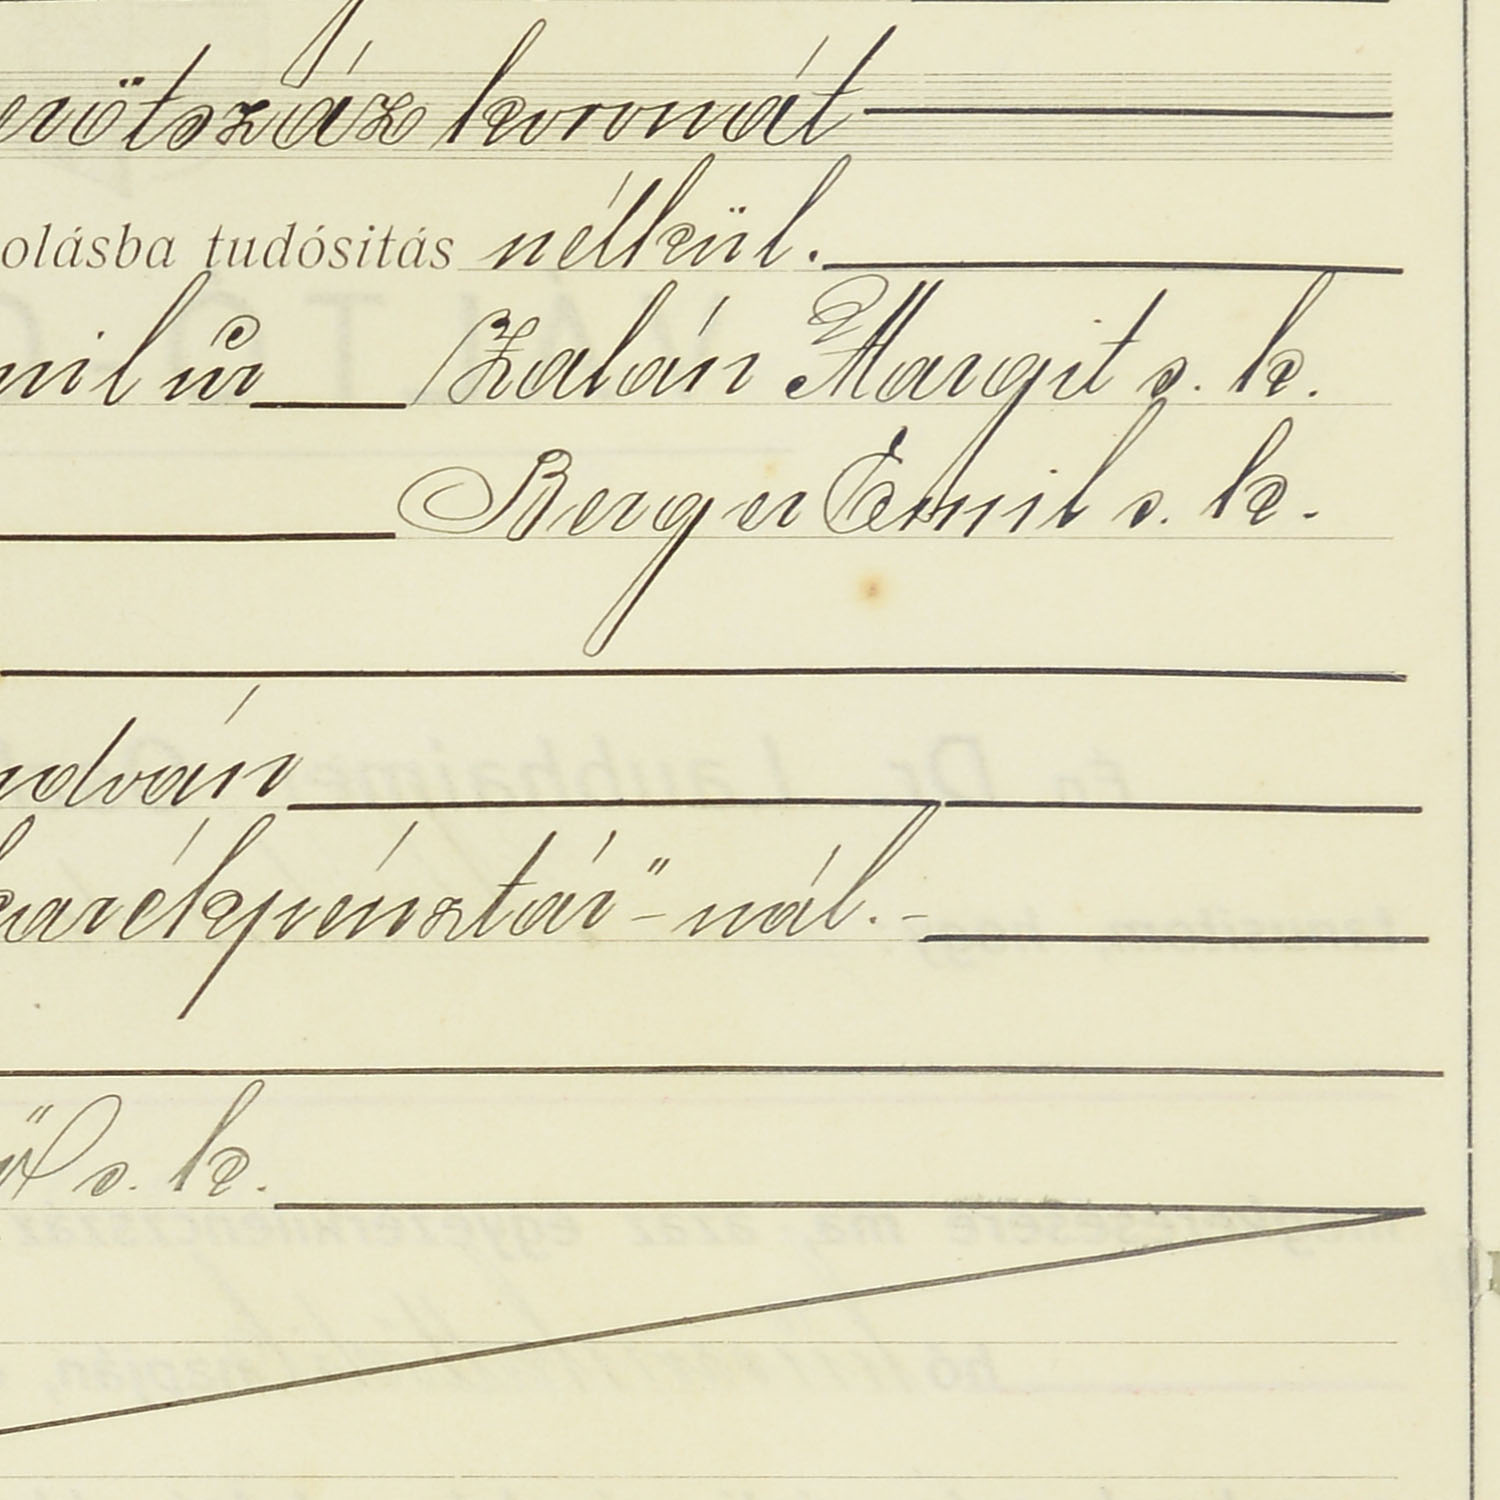 erötszáz koronát
olásba tudósitás nélkül.
mil úr Zalán Margit s. k.
Berger Emil s. k.
ndván
karékpénztár"-nál.-
s. k.